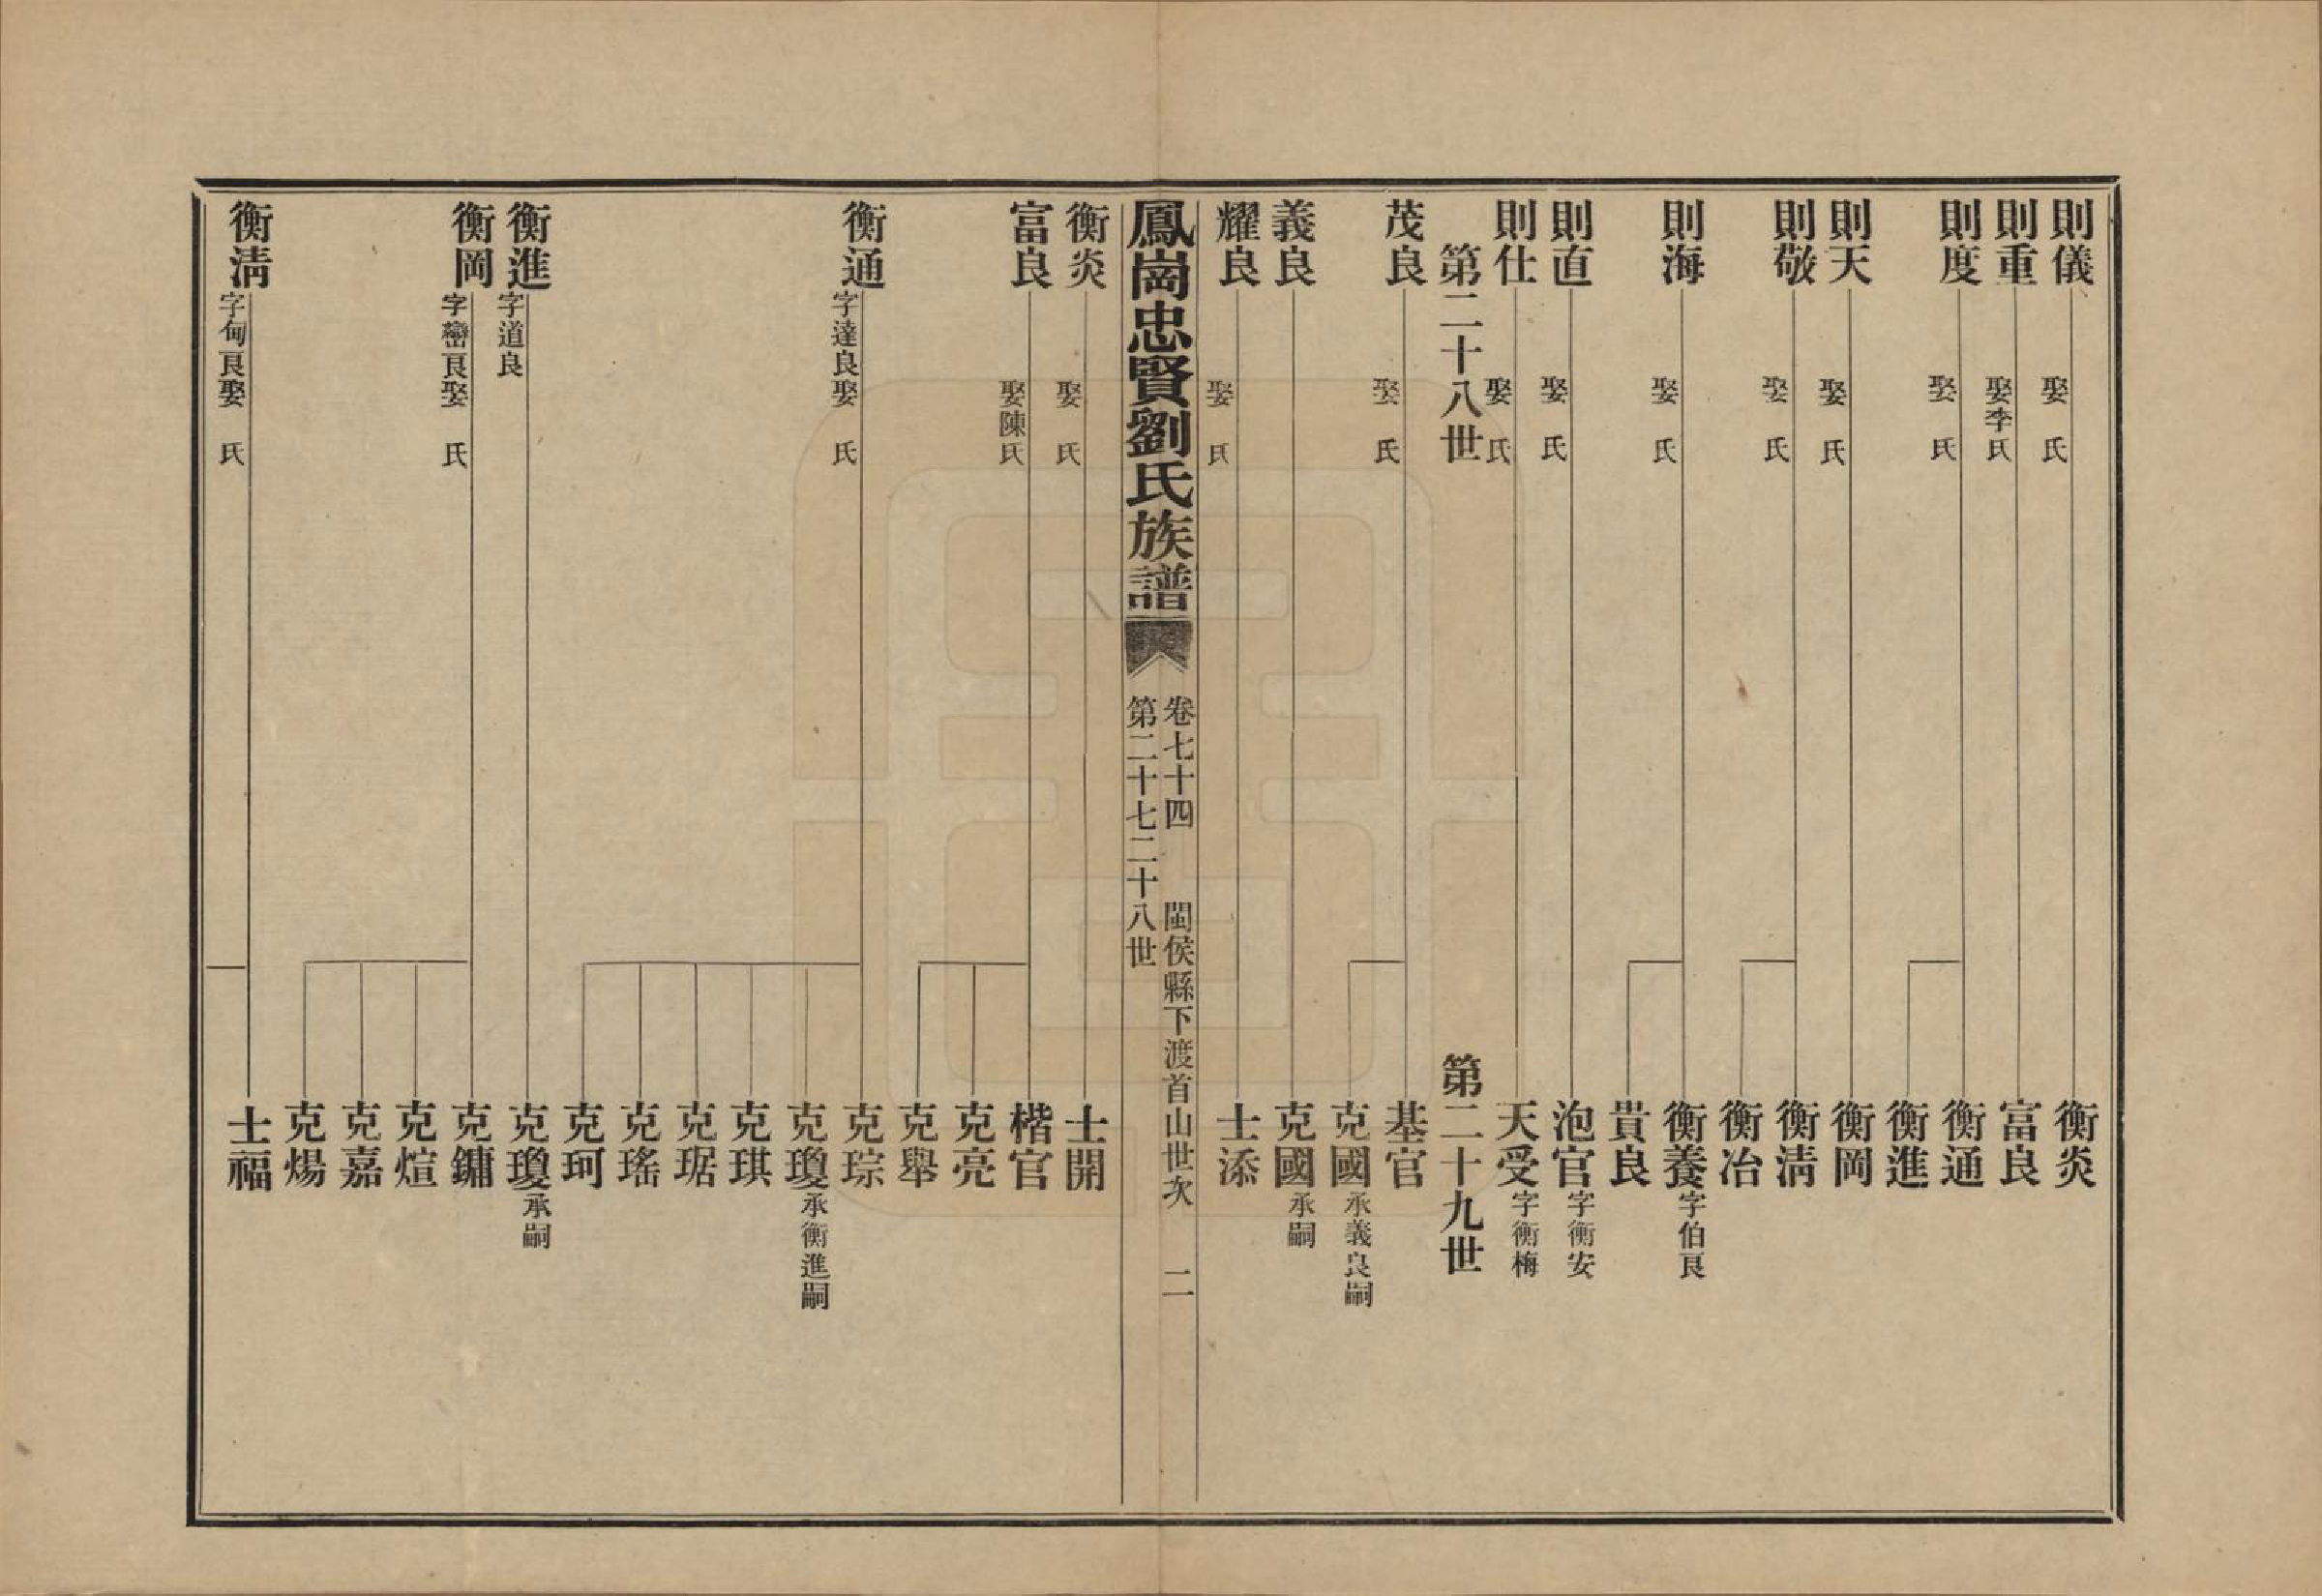 則儀 娶 氏 衡炎
則重 娶李氏 富良
則度 娶 氏 衡通
衡進
則天 娶 氏 衡岡
則敬 娶 氏 衡清
衡冶
則海 娶 氏 衡養 字伯良
貴良
則直 娶 氏 泡官 字衡安
則仕 娶 氏 天受 字衡梅
第二十八世 第二十九世
茂良 娶 氏 基官
克國 承義良嗣
義良 克國 承嗣
耀良 娶 氏 士添
鳳崗忠賢劉氏族譜
卷七十四 閩侯縣下渡首山世次 二
第二十七二十八世
衡炎 娶 氏 士開
富良 娶陳氏 楷官
克亮
克舉
衡通 字達良娶 氏 克琮
克瓊 承衡進嗣
克琪
克琚
克瑤
克珂
衡進 字道良 克瓊 承嗣
衡岡 字巒良娶 氏 克鏞
克煊
克嘉
克煬
衡清 字甸良娶 氏 士福